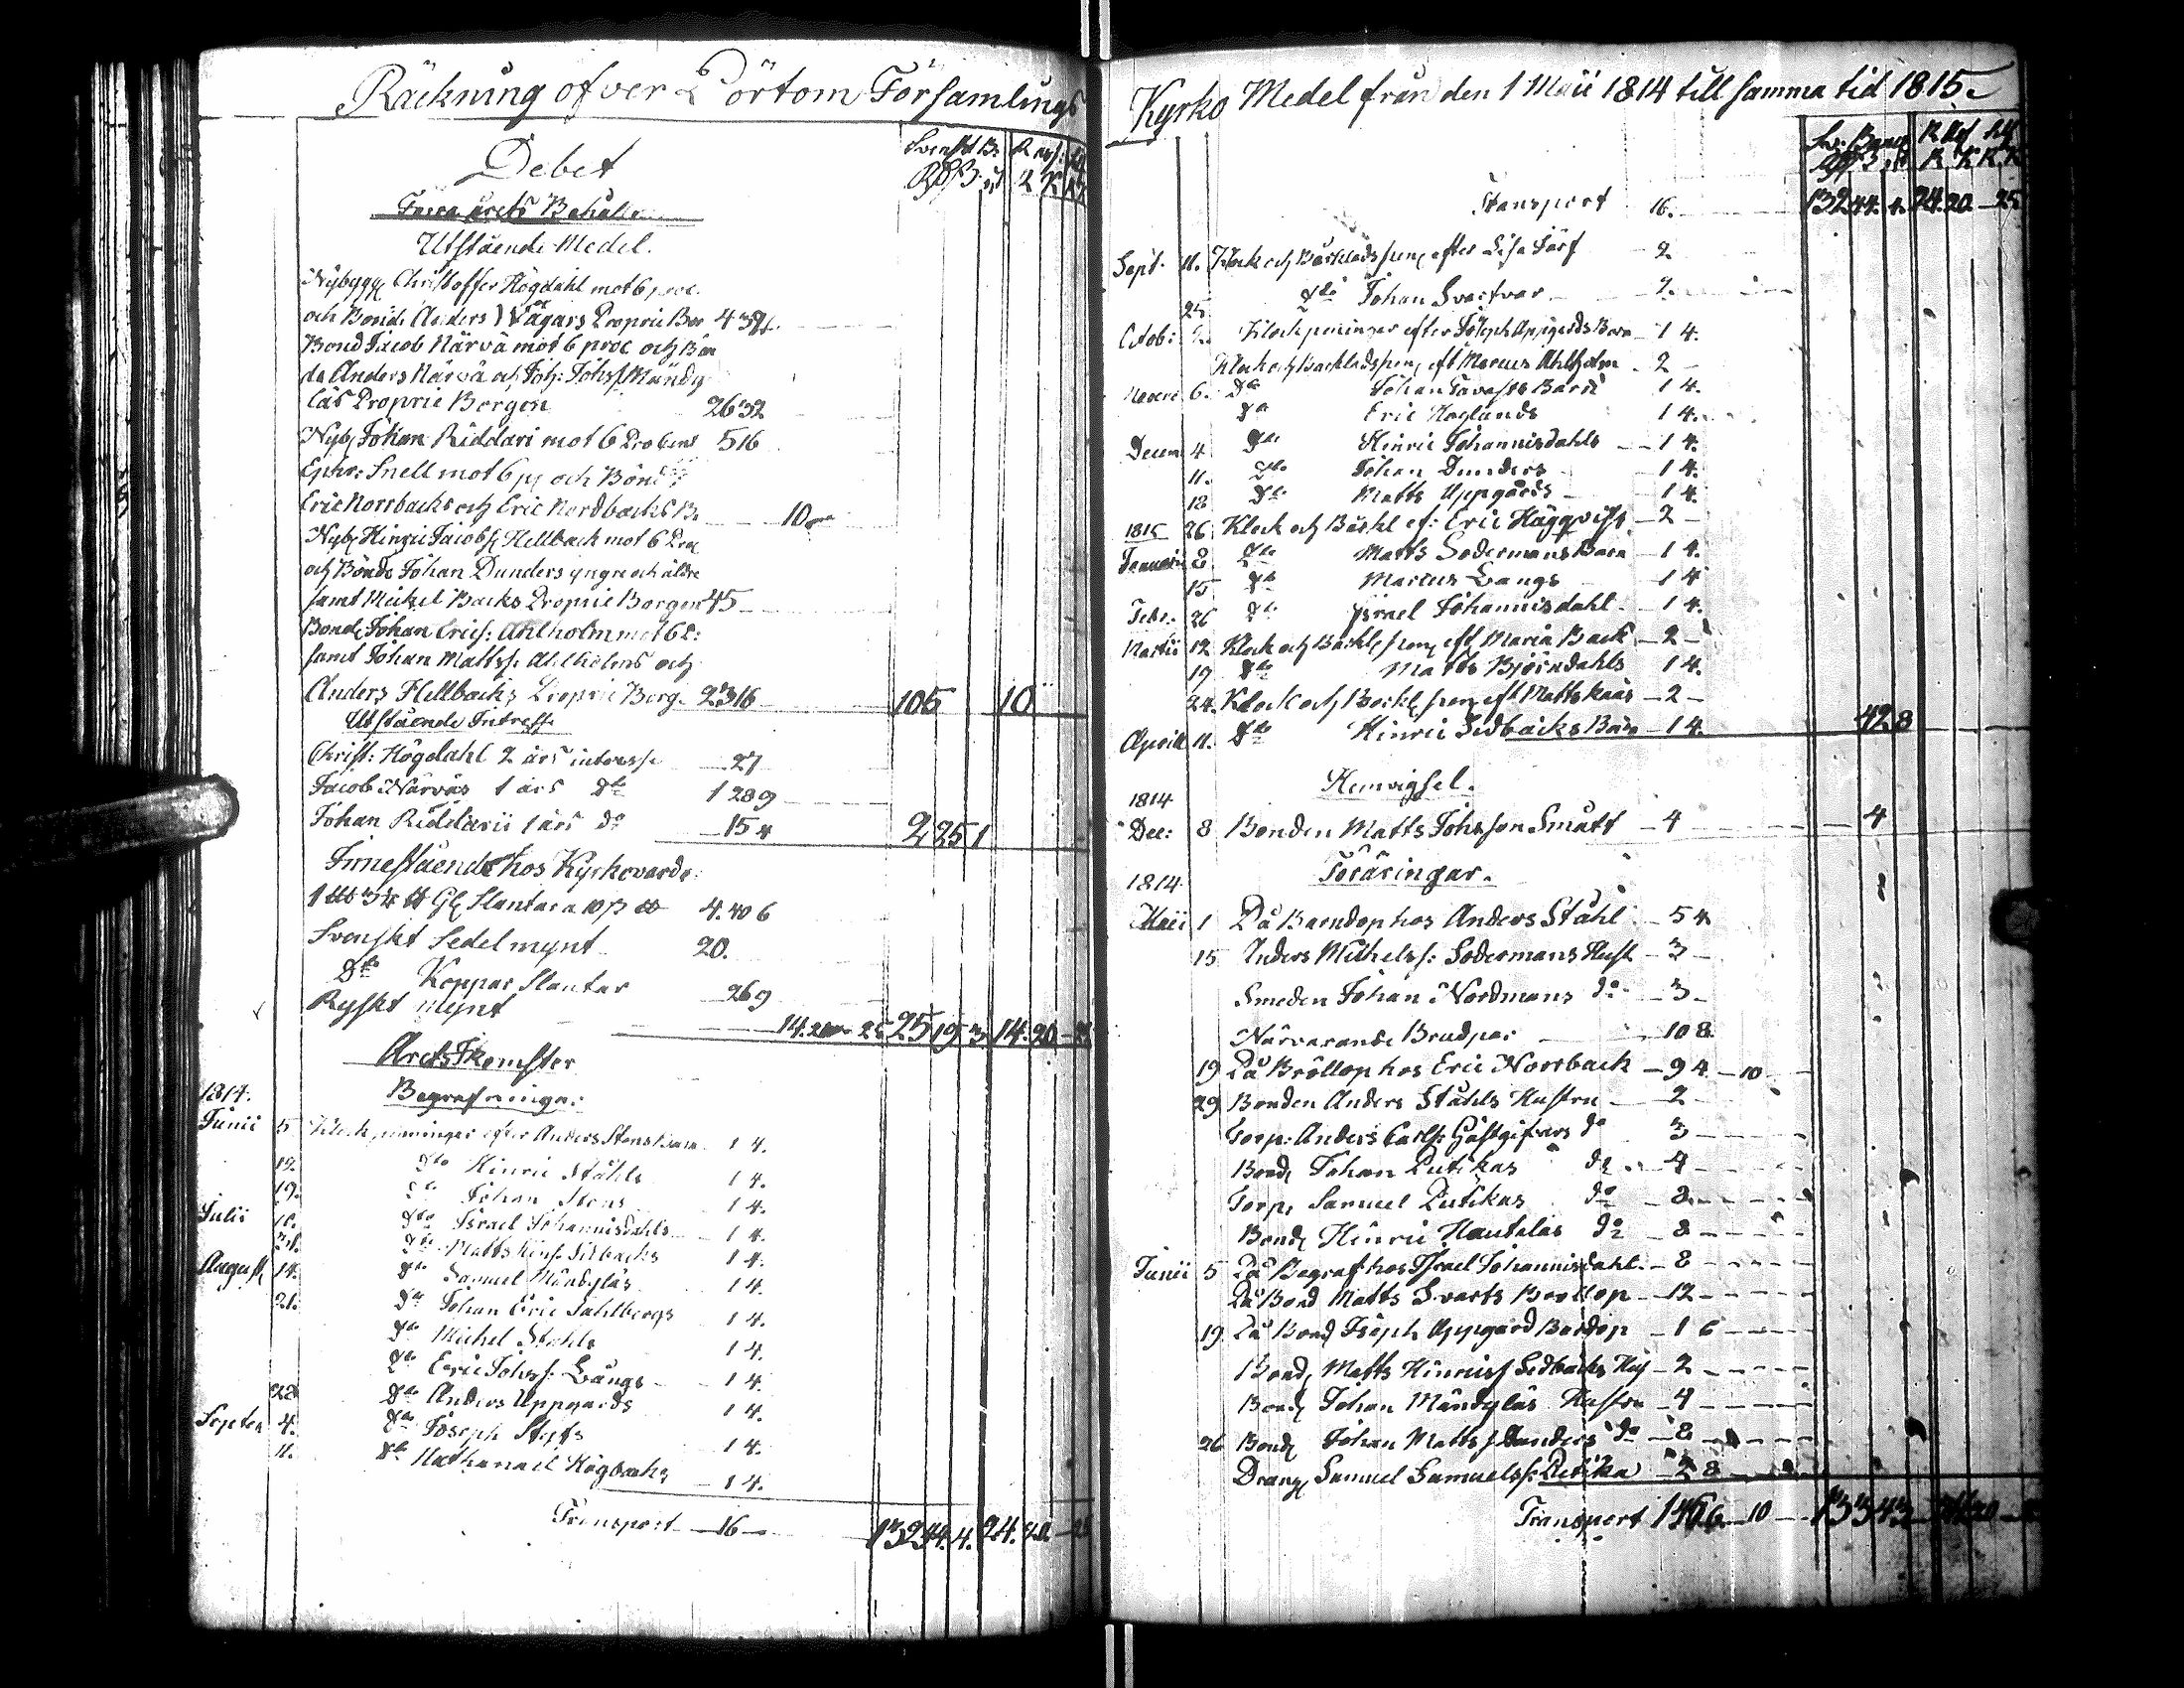 Räckning ofver Pörtom Församlings
Debet
Svenskt B.
Förra årets Behålln
Utstående Medel.
Nybygg Christoffer Högdahl mot 6 proc.
och Bönde Anders Wägars Proprie Bor 43
Bond Jacob Närvä mot 6 proc och Bön
de Anders Närvä och Joh: Johss Mändy
läs Proprie Borgen 26 32
Nyb Johan Riddari mot 6 Procent 5 16
Ephr: Snell mot 6 pr och Bönd
Eric Norrbacks och Eric Nordbacks B. 10
Nyb Hinric Jacobss Hellback mot 6 Proc
och Bönde Johan Dunders yngre och äldre
samt Mickel Backs Proprie Borgen 45
Bond Johan Erics: Ahlholm mot 6 P:
samt Johan Mattss Ahlholms och
Anders Hellbacks Proprie Borg. 23 16 105 10
Utstående Intresse
Christ: Högdahl 2 års interesse 27
Jacob Närväs 1 års Do 1 28 9
Johan Riddarii 1 års do 15 4 2 25 1
Innestående hos Kyrkovärde
Slantar a 10 β 4. 40 6
Svenskt Sedelmynt 20.
Dto Koppar Slantar 26 9
Ryskt mynt 14. 20 25 25 19 3 14. 20
Årets Inkomster
1814. Begrafningar
Junii 5 Klockpenningar efter Anders Stens Barn 1 4.
12. Dto Hinric Ståhls 1 4.
19. Do Johan Stens 1 4.
Julii 10. Dto Israel Johannisdahls 1 4.
31. Dto Matts Hins: Sidbacks 1 4.
August 14. Do Samuel Mändyläs 1 4.
21. Do Johan Eric Sahlbergs 1 4.
Do Michel Ståhls 1 4.
Do Eric Johss: Långs 1 4.
28 Do Anders Uppgårds 1 4.
Septem 4. Do Joseph Styfs 1 4.
11. Do Nathanael Högbacks 1 4.
Transport 16 132 44. 4. 24. 20.
Kyrko Medel från den 1 Maii 1814 till samma tid 1815.
Transport 16. 132 44. 4. 24. 20. 25
Sept. 11. Klock och Bårklädspen efter Lisa Särf 2.
25 Do Johan Svartvar 2.
Octob: 2. Klockpeninger efter Joseph Uppgårds Barn 1 4.
Klock och Bårklädspen eft Marcus Ahlholm 2
Novem 6. Do Johan Barn 1 4.
Do Eric Höglunds 1 4.
Decem 4 Do Hinric Johannisdahls 1 4.
11. Do Johan Dunders 1 4.
18 Do Matts Uppgårds 1 4.
1815 26 Klock och Bårkl ef: Eric Häggqvist 2
Januarii 8 Do Matts Södermans Barn 1 4.
15 Do Marcus Långs 1 4
Febr. 26 Do Israel Johannisdahl 1 4.
Martii 12 Klock och Bårkl pen eft Maria Back 2
19 Do Matts Björndahls 1 4.
24. Klock och Bårkl pen eft Matts Kaäs 2
Aprill 11. Do Hinric Sidbäcks Barn 1 4. 42 8
1814 Hemvigsel.
Dec: 8 Bonden Matts Johsson Smått 4 4
1814 Föräringar.
Maii 1 På Barndop hos Anders Ståhl 5 4
15 Anders Mickelss: Södermans Hust 3
Smeden Johan Nordmans do 3
Närvarande Brudpar 10 8
19 På Bröllop hos Eric Norrback 9 4 10
29 Bonden Anders Ståhls Hustru 2
Torp: Anders Carls: Gästgifvars do 3
Bond Johan Putikas do 4
Torp, Samuel Putikas do 8
Bond Hinric Hautalas do 8
Junii 5 På Begraf hos Israel Johannisdahl 8
På Bond Matts Svarts Bröllop 12
19 På Bond Joseph Uppgård Bardop 1 6
Bond, Matts Hinricss Sidbäcks Hus 2
Bond Johan Mändyläs Hustru 4
26 Bond Johan Mattss Dunders do 8
Dräng Samuel Samuelss: Putika 2 8
Transport 10 133 43